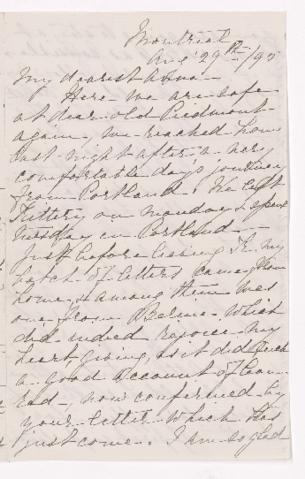 Montreal
Aug 29th/95
My dearest Anna -
Here we are safe
at dear old Piedmont
again, we reached home
last night after a very
comfortable days journey
from Portland. We left
Kittery on Monday & spent
Tuesday in Portland -
Just before leaving K. my
batch of letters came from
home, & among them was
one from which
did indeed rejoice my
heart giving, as it did such
a good account of
now confirmed by
your letter which has
just come. I am so glad